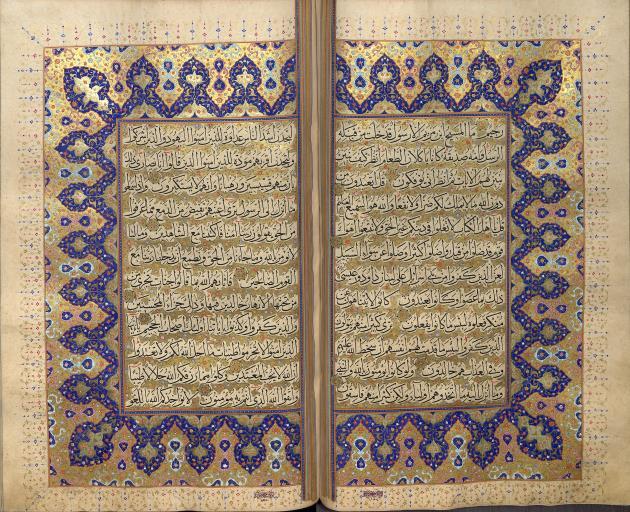 رحيم ما المسيح ابن مريم الا رسول قد خلت من قبله
الرسل وامه صديقة كانا ياكلان الطعام انظر كيف نبين
لهم الايات ثم انظر انى يؤفكون قل اتعبدون من
دون الله ما لا يملك لكم ضرا ولا نفعا والله هو السميع العليم
قل يا اهل الكتاب لا تغلوا في دينكم غير الحق ولا تتبعوا اهواء
قوم قد ضلوا من قبل واضلوا كثيرا وضلوا عن سواء السبيل
لعن الذين كفروا من بني اسرائيل على لسان داود وعيسى ابن مريم
ذلك بما عصوا وكانوا يعتدون كانوا لا يتناهون عن
منكر فعلوه لبئس ما كانوا يفعلون ترى كثيرا منهم يتولون
الذين كفروا لبئس ما قدمت لهم انفسهم ان سخط الله عليهم
وفي العذاب هم خالدون ولو كانوا يؤمنون بالله والنبي
وما انزل اليه ما اتخذوهم اولياء ولكن كثيرا منهم فاسقون
لتجدن اشد الناس عداوة للذين امنوا اليهود والذين اشركوا
ولتجدن اقربهم مودة للذين امنوا الذين قالوا انا نصارى ذلك
بان منهم قسيسين ورهبانا وانهم لا يستكبرون واذا سمعوا
ما انزل الى الرسول ترى اعينهم تفيض من الدمع مما عرفوا
من الحق يقولون ربنا امنا فاكتبنا مع الشاهدين وما لنا
لا نؤمن بالله وما جاءنا من الحق ونطمع ان يدخلنا ربنا مع
القوم الصالحين فاثابهم الله بما قالوا جنات تجري
من تحتها الانهار خالدين فيها وذلك جزاء المحسنين
والذين كفروا وكذبوا باياتنا اولئك اصحاب الجحيم يا ايها
الذين امنوا لا تحرموا طيبات ما احل الله لكم ولا تعتدوا ان
الله لا يحب المعتدين وكلوا مما رزقكم الله حلالا طيبا
واتقوا الله الذي انتم به مؤمنون لا يؤاخذكم الله باللغو